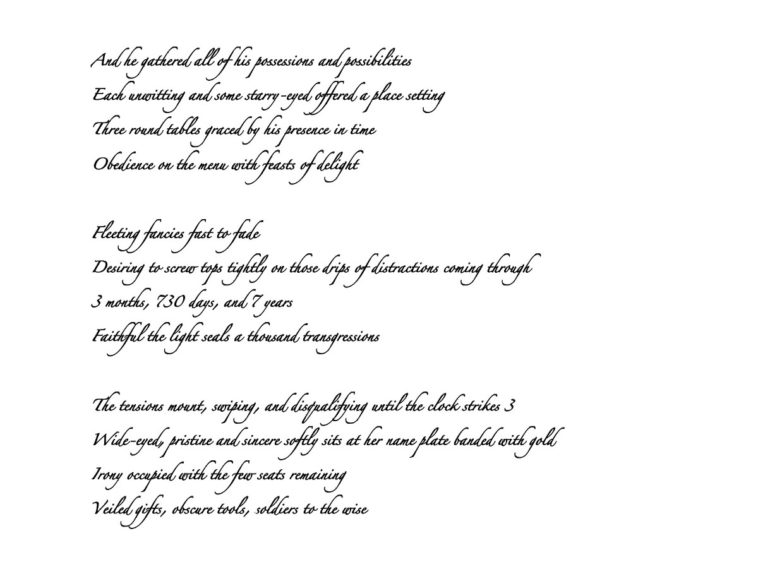 And he gathered all of his possessions and possibilities
Each unwitting and some starry-eyed offered a place setting
Three round tables graced by his presence in time
Obedience on the menu with feasts of delight
Fleeting fancies fast to fade
Desiring to screw tops tightly on those drips of distractions coming through
3 months, 730 days, and 7 years
Faithful the light seals a thousand transgressions
The tensions mount, swiping, and disqualifying until the clock strikes 3
Wide-eyed, pristine and sincere softly sits at her name plate banded with gold
Irony occupied with the few seats remaining
Veiled gifts, obscure tools, soldiers to the wise